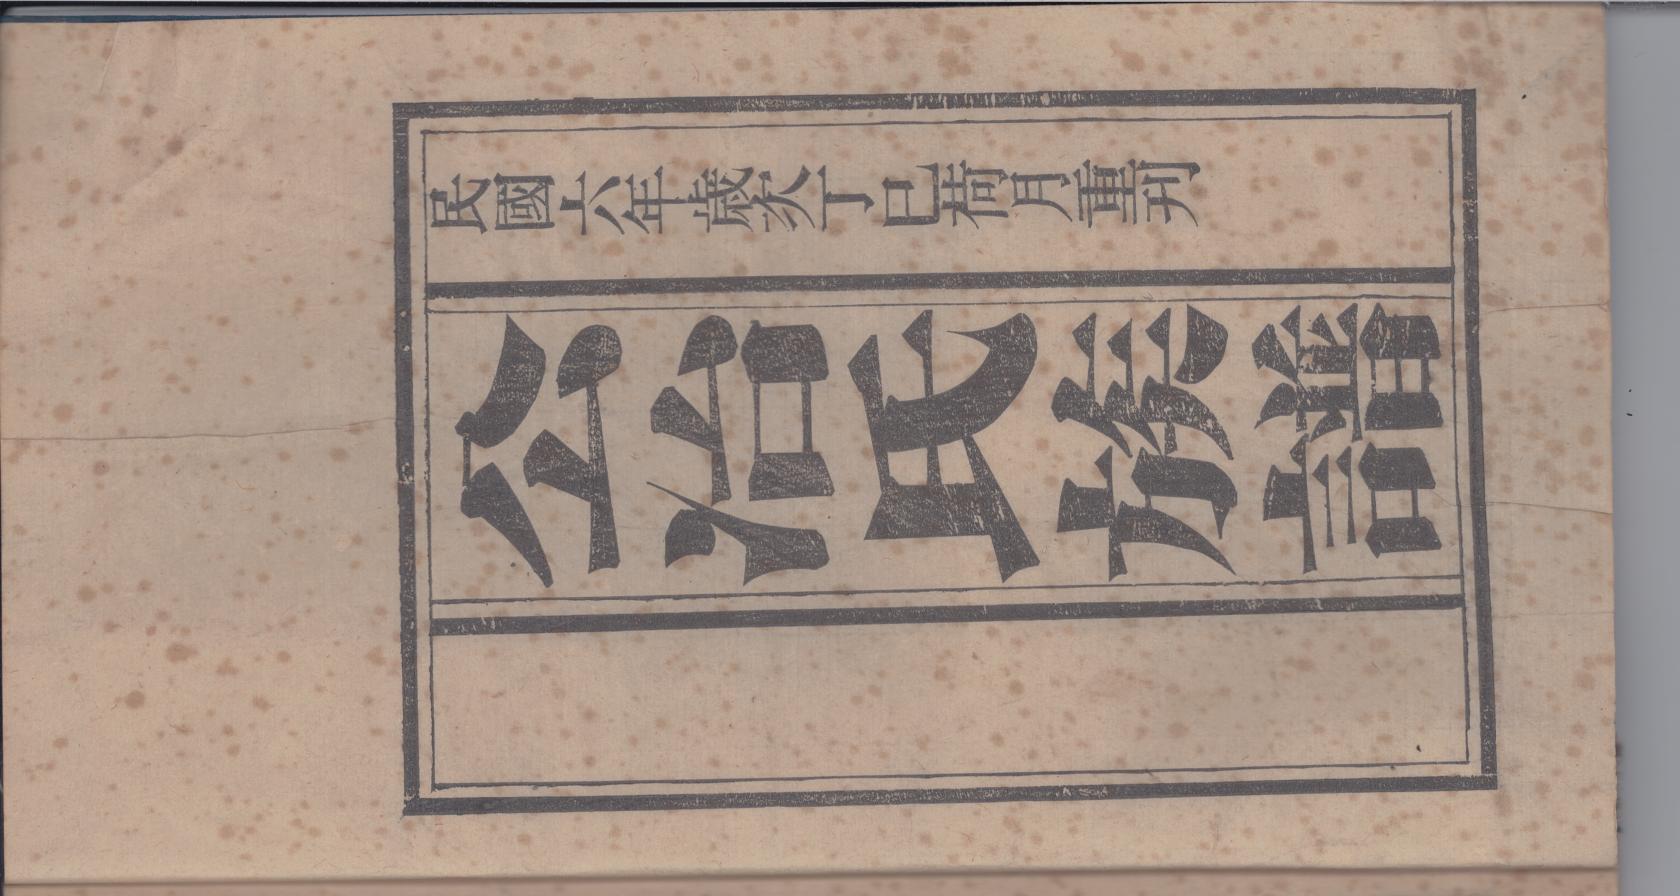 民國六年歲次丁巳荷月重刊
公冶氏族譜